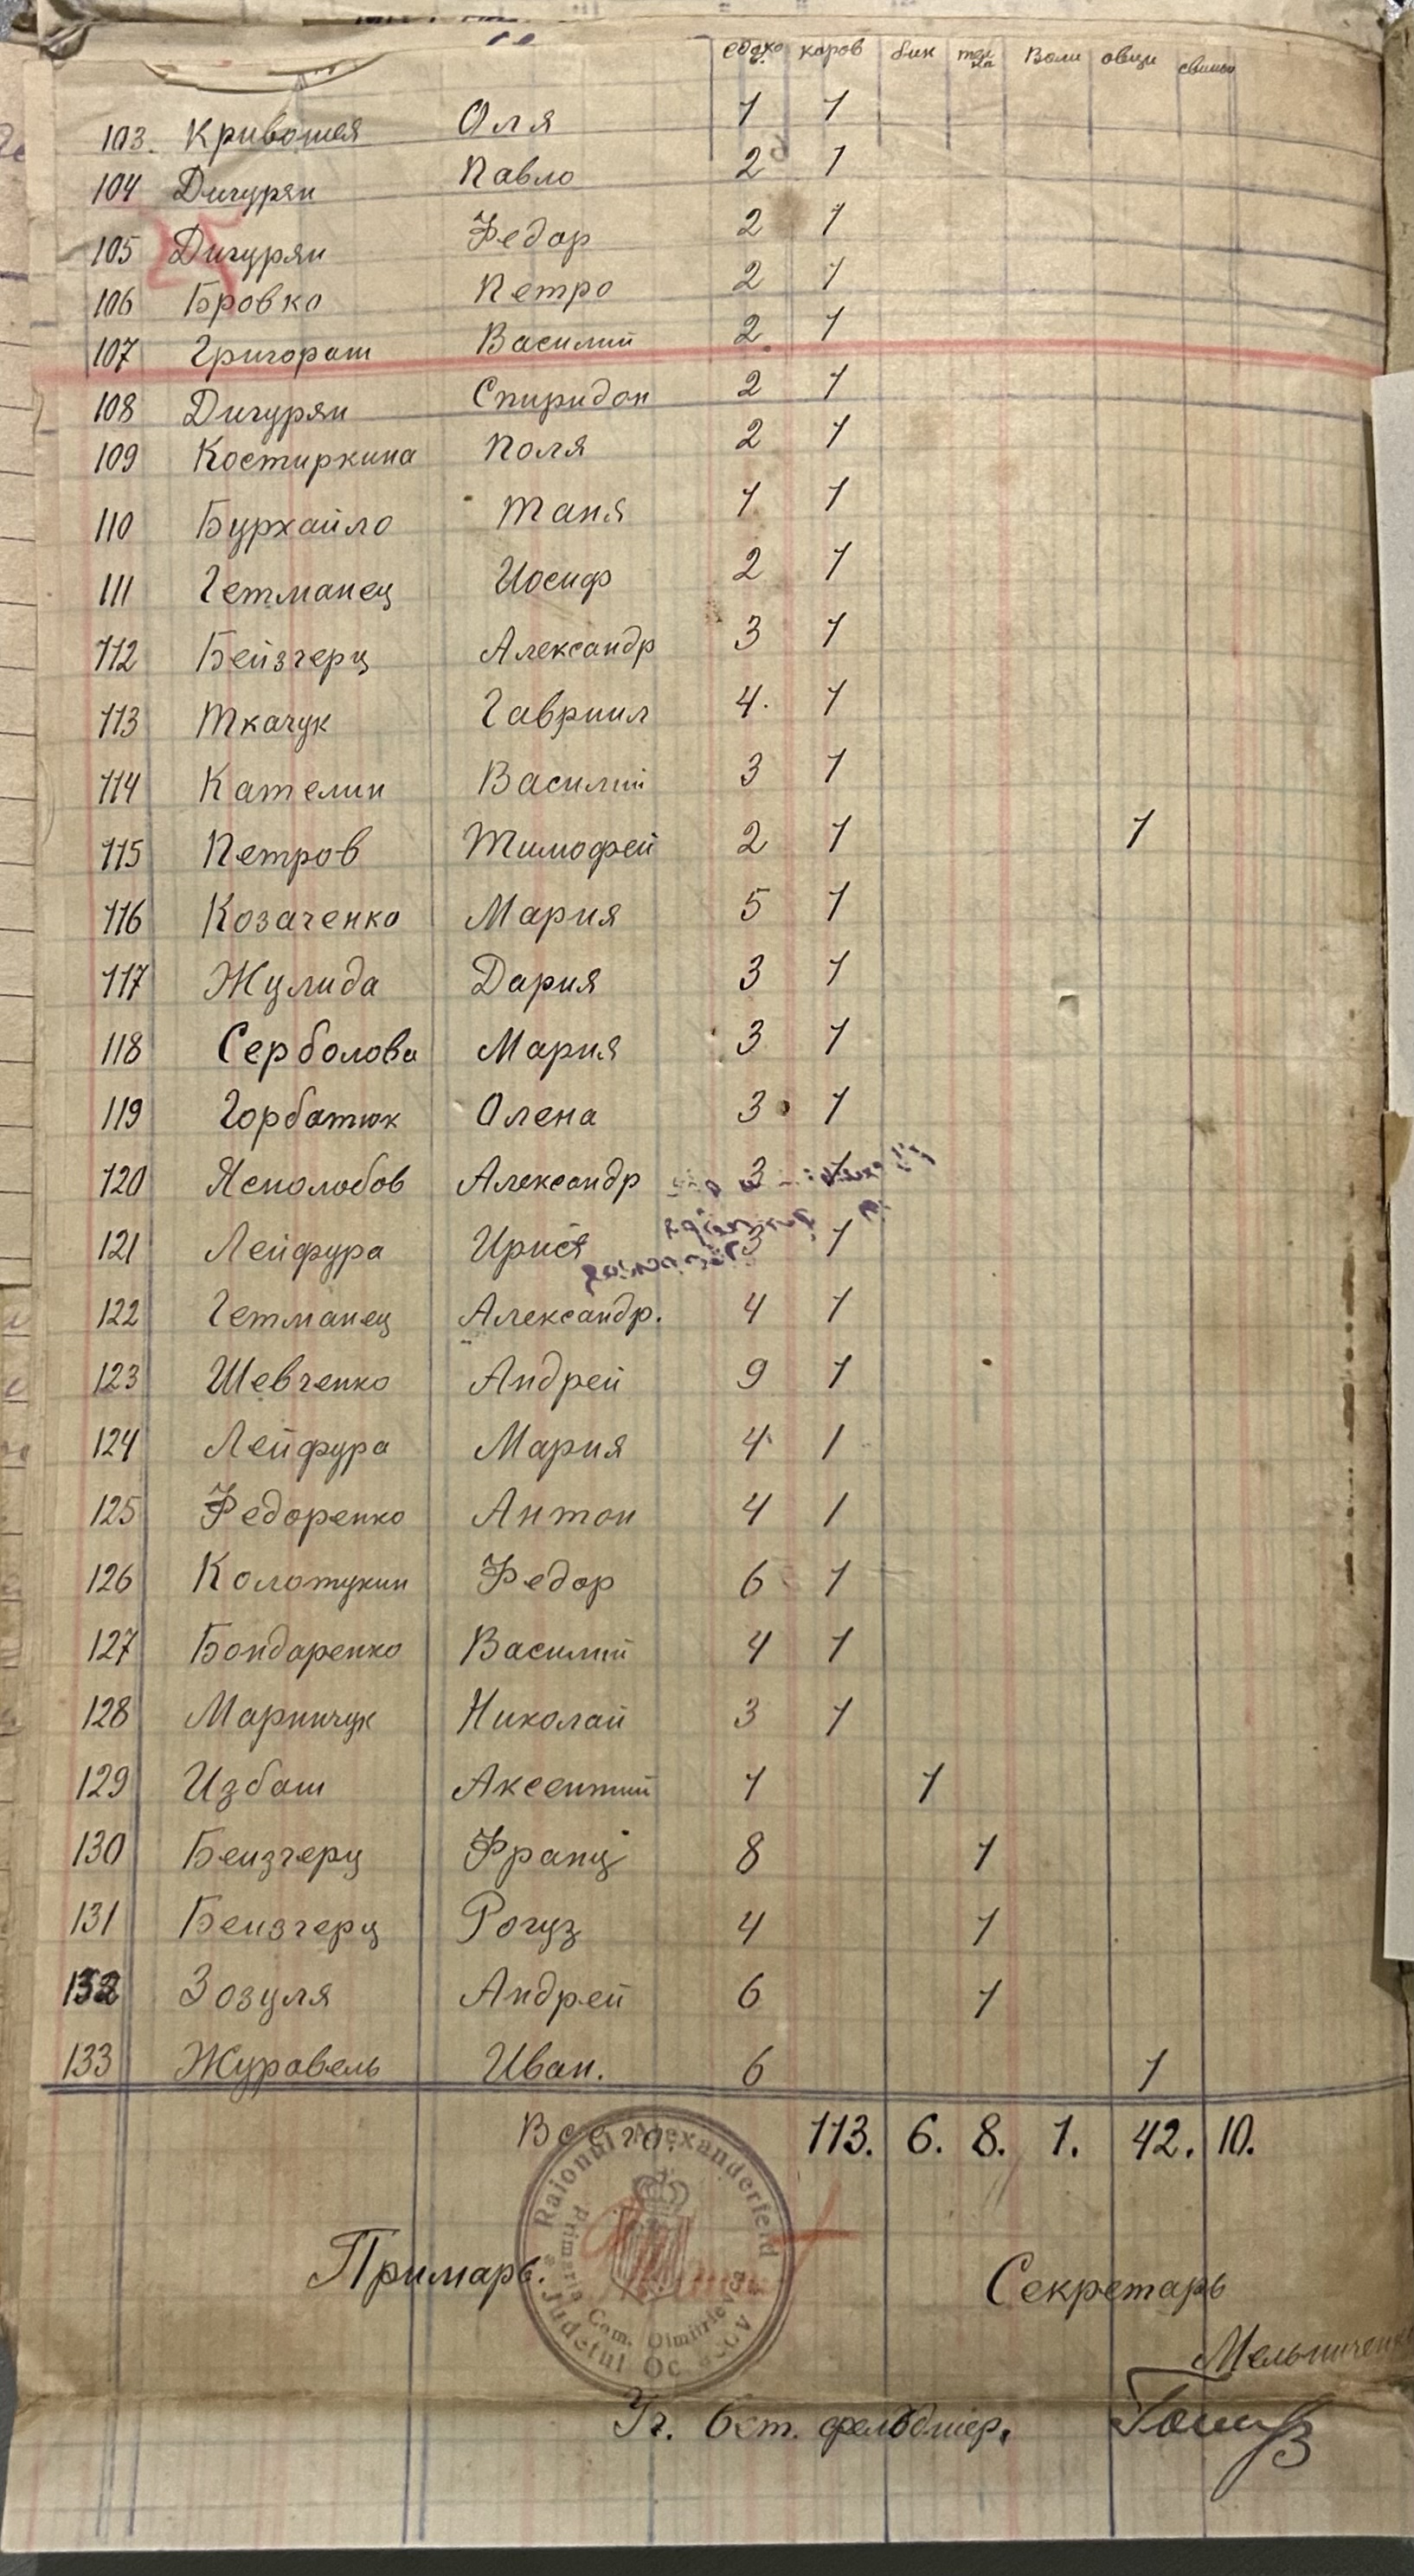 каров бик телка Воли овци свиньи
103. Кривошея Оля 1 1
104 Дигурян Павло 2 1
105 Дигурян Федор 2 1
106 Бровко Петро 2 1
107 Григораш Василий 2 1
108 Дигурян Спиридон 2 1
109 Костиркина Поля 2 1
110 Бурхайло Таня 1 1
111 Гетманец Иосиф 2 1
112 Бейзгерц Александр 3 1
113 Ткачук Гавриил 4. 1
114 Кателин Василий 3 1
115 Петров Тимофей 2 1 1
116 Козаченко Мария 5 1
117 Жулида Дария 3 1
118 Серболова Мария 3 1
119 Горбатюк Олена 3 1
120 Яснолобов Александр 3 1
121 Лейфура 3 1
122 Гетманец Александр. 4 1
123 Шевченко Андрей 9 1
124 Лейфура Мария 4 1
125 Федоренко Антон 4 1
126 Колотухин Федор 6 1
127 Бондаренко Василий 4 1
128 Маринчук Николай 3 1
129 Избаш Аксентий 1 1
130 Беизгерц Франц 8 1
131 Беизгерц Рогуз 4 1
132 Зозуля Андрей 6 1
133 Журавель Иван. 6 1
Всего. 113. 6. 8. 1. 42. 10.
Raionul Alexanderfeld
Primaria Com. Dimitrievca
Judetul Oceacov
Примарь. Секретарь
Мельниченко
Уч. Вет. фельдшер.